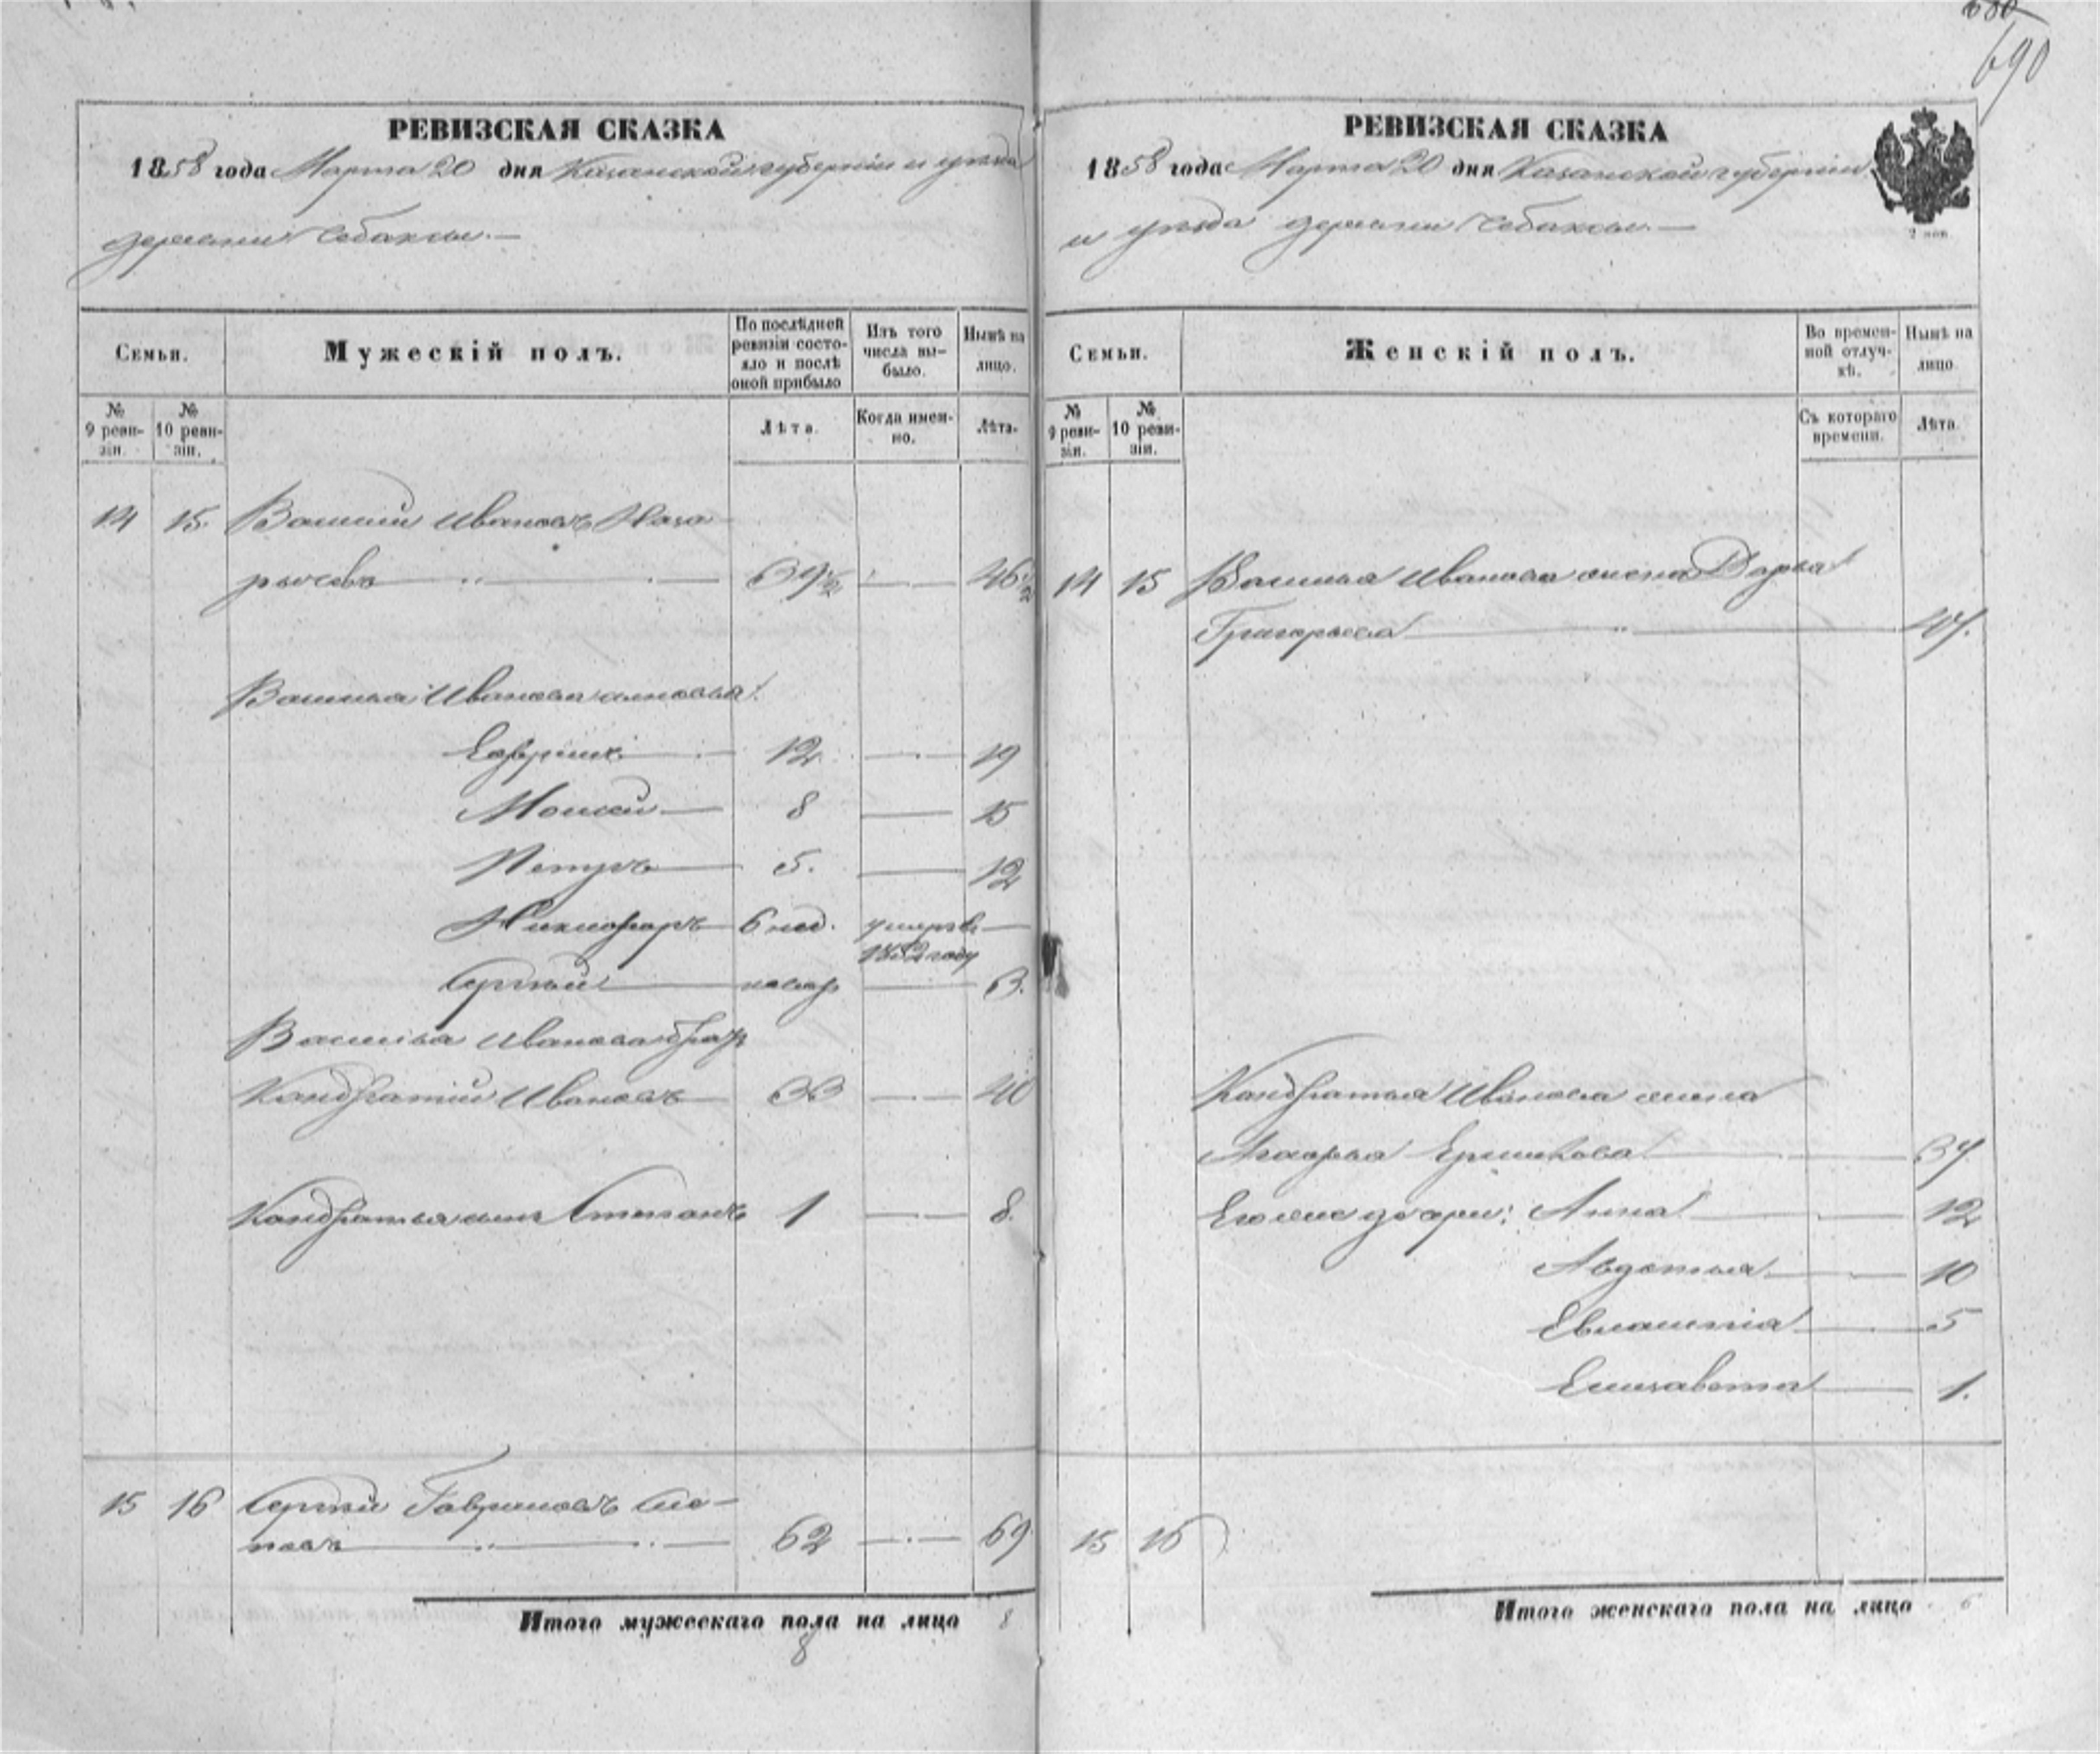 690
РЕВИЗСКАЯ СКАЗКА
1858 года Марта 20 дня Казанской губерніи и уѣзда
деревни Чебаксы.—
Семьи.
Мужескій полъ.
По послѣдней ревизіи состояло и послѣ оной прибыло
Изъ того числа выбыло.
Нынѣ на лицо.
№ 9 ревизіи.
№ 10 ревизіи.
Лѣта.
Когда именно.
Лѣта.
14 15. Василий Ивановъ Наза
рычевъ 39 1/2 46 1/2
Василья Иванова сыновья:
Гаврила 12 19
Моисей 8 15
Петръ 5. 12
Никифоръ 6 нед. умеръ въ
1852 году
Сергѣй 3.
Василья Иванова братъ
Кандратій Ивановъ 33 40
Кандратья сынъ Степанъ 1 8.
15 16 Сергѣй Гавриловъ
62 69
Итого мужескаго пола на лицо 8
8
РЕВИЗСКАЯ СКАЗКА
1858 года Марта 20 дня Казанской губерніи
и уѣзда деревни Чебаксы.—
2 коп.
Семьи.
Женскій полъ.
Во временной отлучкѣ.
Нынѣ на лицо
№ 9 ревизіи.
№ 10 ревизіи.
Съ котораго времени.
Лѣта.
14 15 Василья Иванова жена Дарья
Григорьева 47.
Кандратья Иванова жена
Агафья 37
Его же дочери: Анна 12
Авдотья 10
5
Елизавета 1.
15 16
Итого женскаго пола на лицо 6